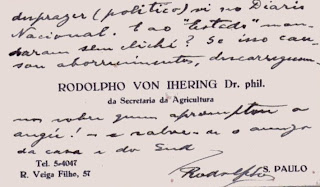 desprazer (politico) vi no Diario
Nacional. E ao "Estado" man-
daram seu cliché? Se isso cau-
sou aborrecimentos, descarreguem-
RODOLPHO VON IHERING Dr. phil.
da Secretaria da Agricultura
nos sobre quem apromptou a
e o amigo
da casa e do
Tel. 5-4047
R. Veiga Filho, 57
Rodolpho
S. PAULO